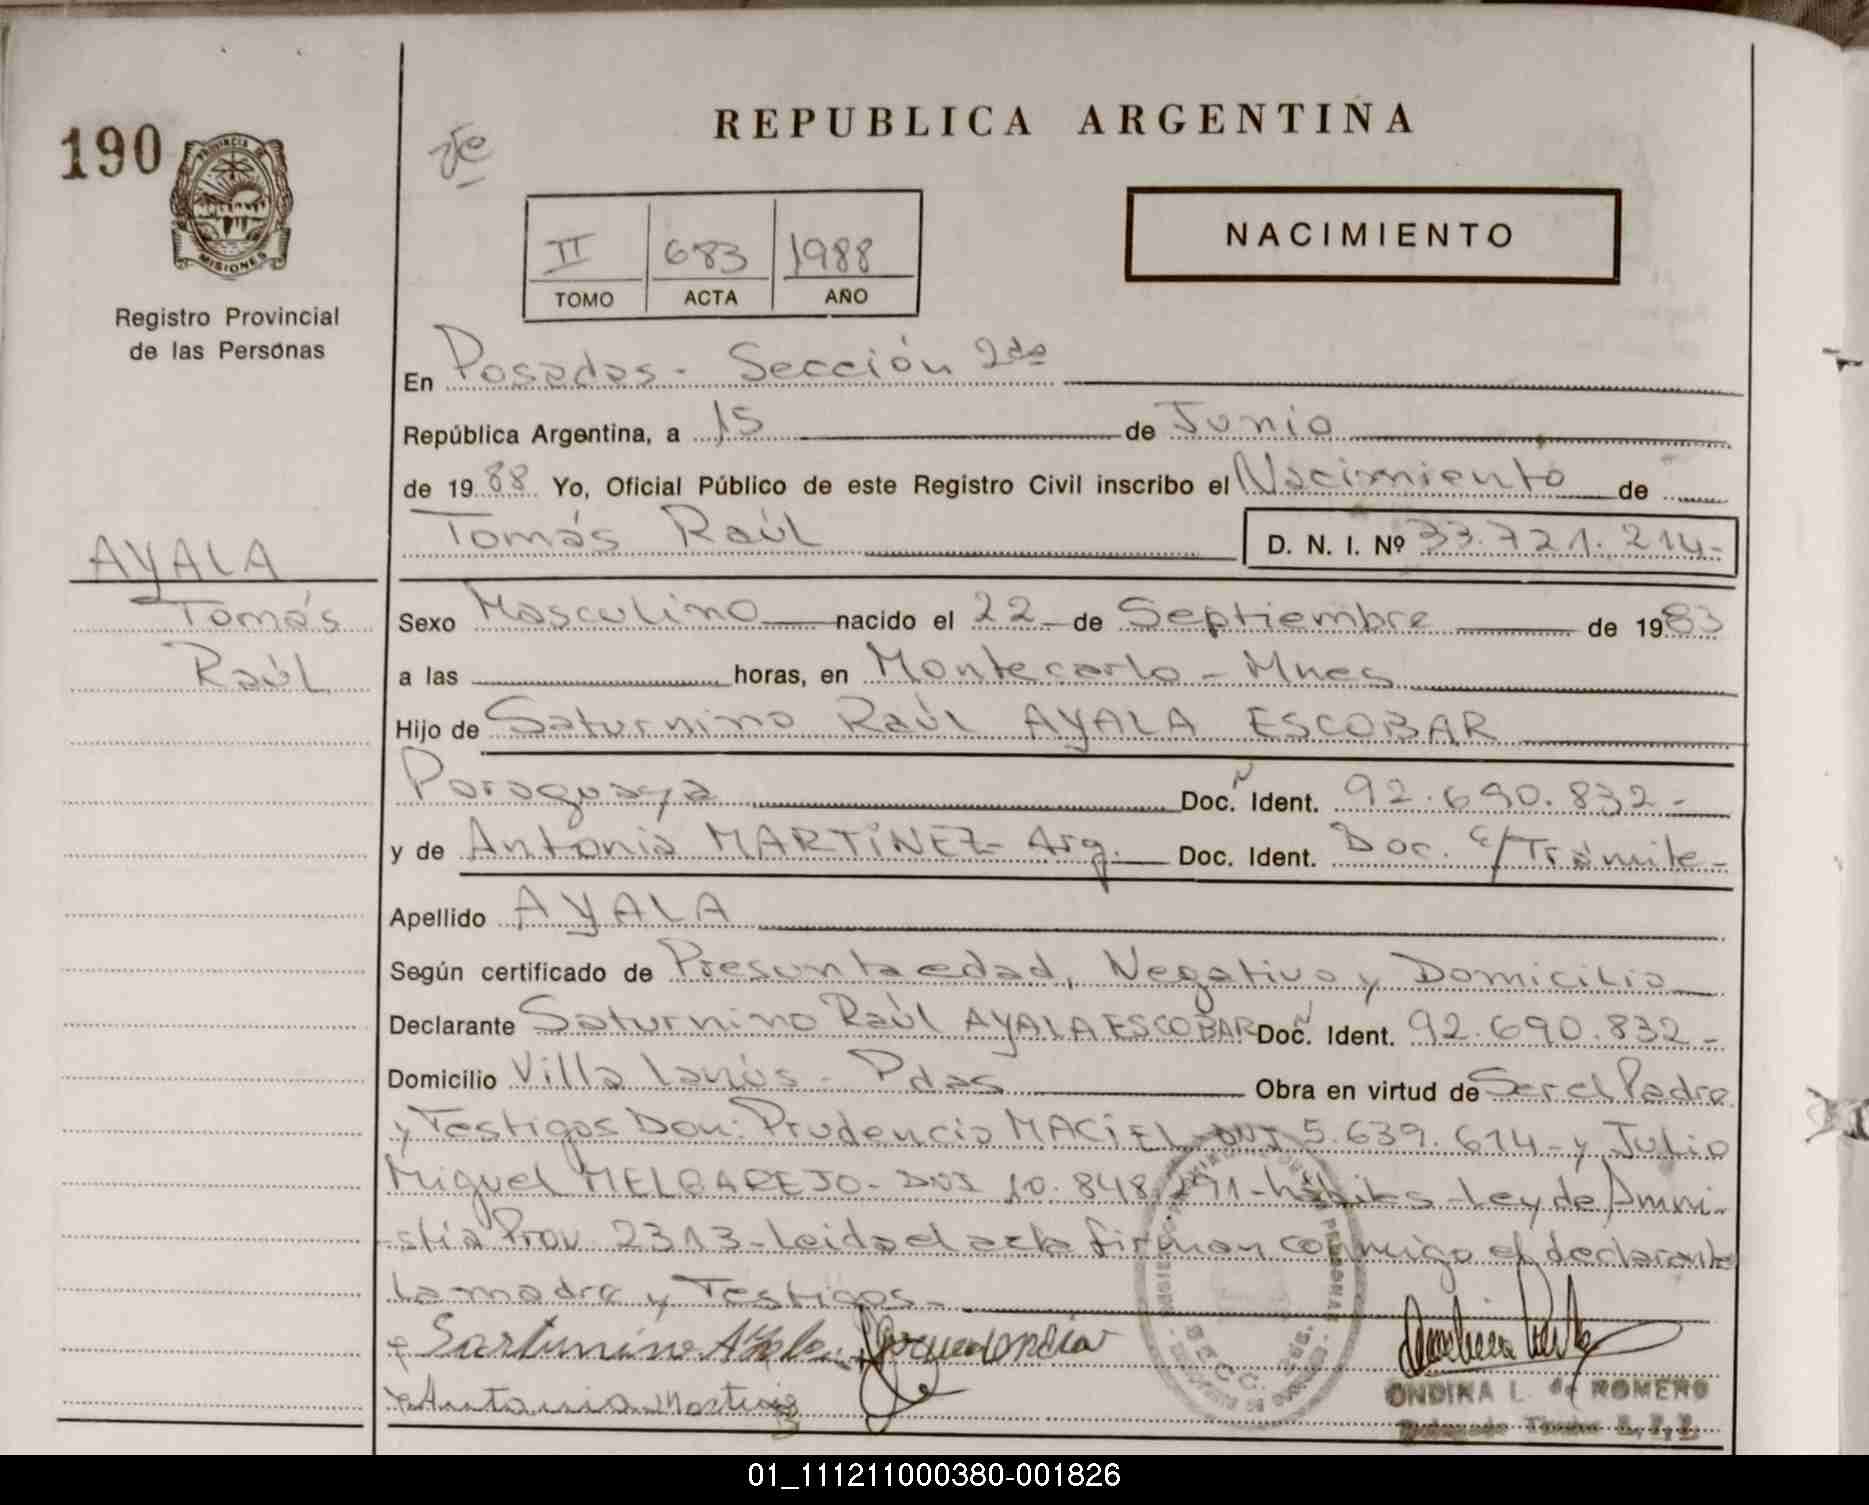 REPUBLICA ARGENTINA
190
PROVINCIA DE
MISIONES
Registro Provincial
de las Personas
NACIMIENTO
II 683 1988
TOMO ACTA AÑO
En Posadas - Sección 2da
República Argentina, a 15 de Junio
de 1988 Yo, Oficial Público de este Registro Civil inscribo el Nacimiento de
Tomás Raúl D. N. I. Nº 33.721.214-
AYALA
Tomás
Raúl
Sexo Masculino nacido el 22 de Septiembre de 1983
a las horas, en Montecarlo - Mnes
Hijo de Saturnino Raúl AYALA ESCOBAR
Paraguaya Doc. Ident. 92.690.832-
y de Antonia MARTÍNEZ - Arg. Doc. Ident. Doc. e/Trámite-
Apellido AYALA
Según certificado de Presunta edad, Negativo y Domicilio
Declarante Saturnino Raúl AYALA ESCOBAR Doc. Ident. 92.690.832-
Domicilio Villa Lanús - Pdas Obra en virtud de Ser el Padre
y Testigos Don: Prudencio MACIEL - DNI 5.639.614 - y Julio
Miguel MELGAREJO - DNI 10.848.291 - hábiles - Ley de Amni-
stía Prov. 2313 - Leida el acta firman conmigo el declarante
la madre y Testigos -
Sarturnino Ayala
Antonia Martinez
ONDINA L. de ROMERO
01_111211000380-001826